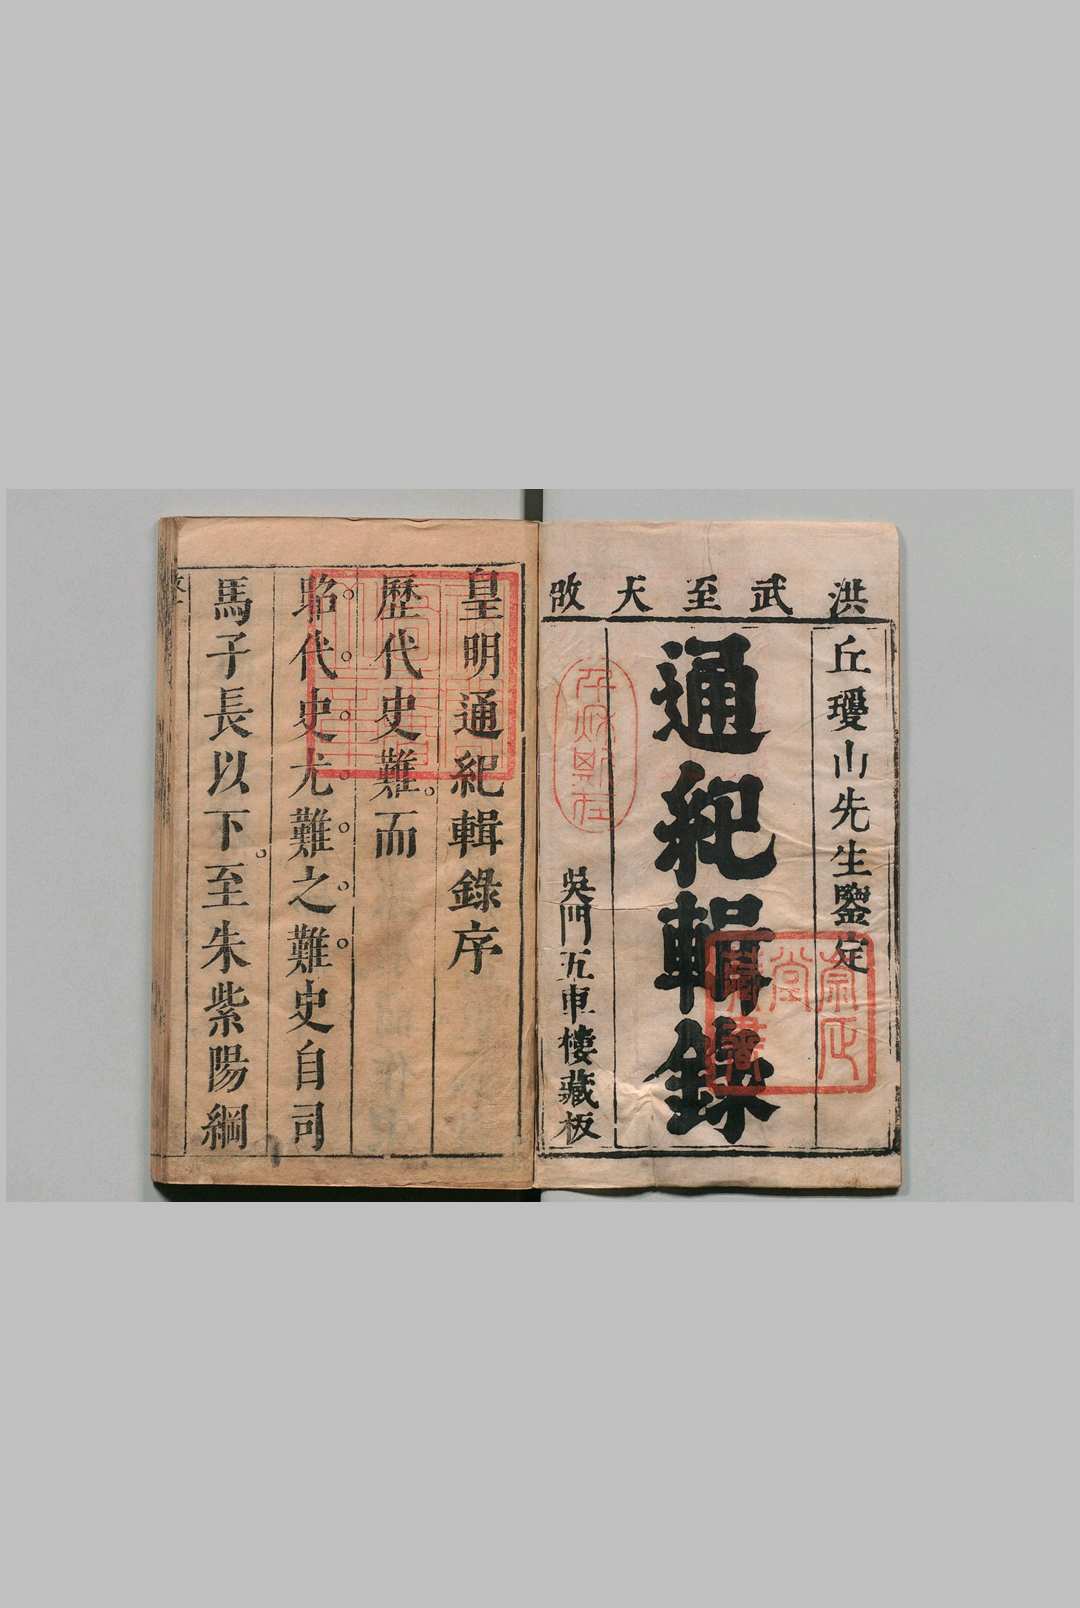 洪武至天啟
丘瓊山先生鑒定
通紀輯錄
吳門五車樓藏板
皇明通紀輯錄序
歷代史難。而
昭代。史。尤。難。之。難。史自司
馬子長以下。至朱紫陽綱